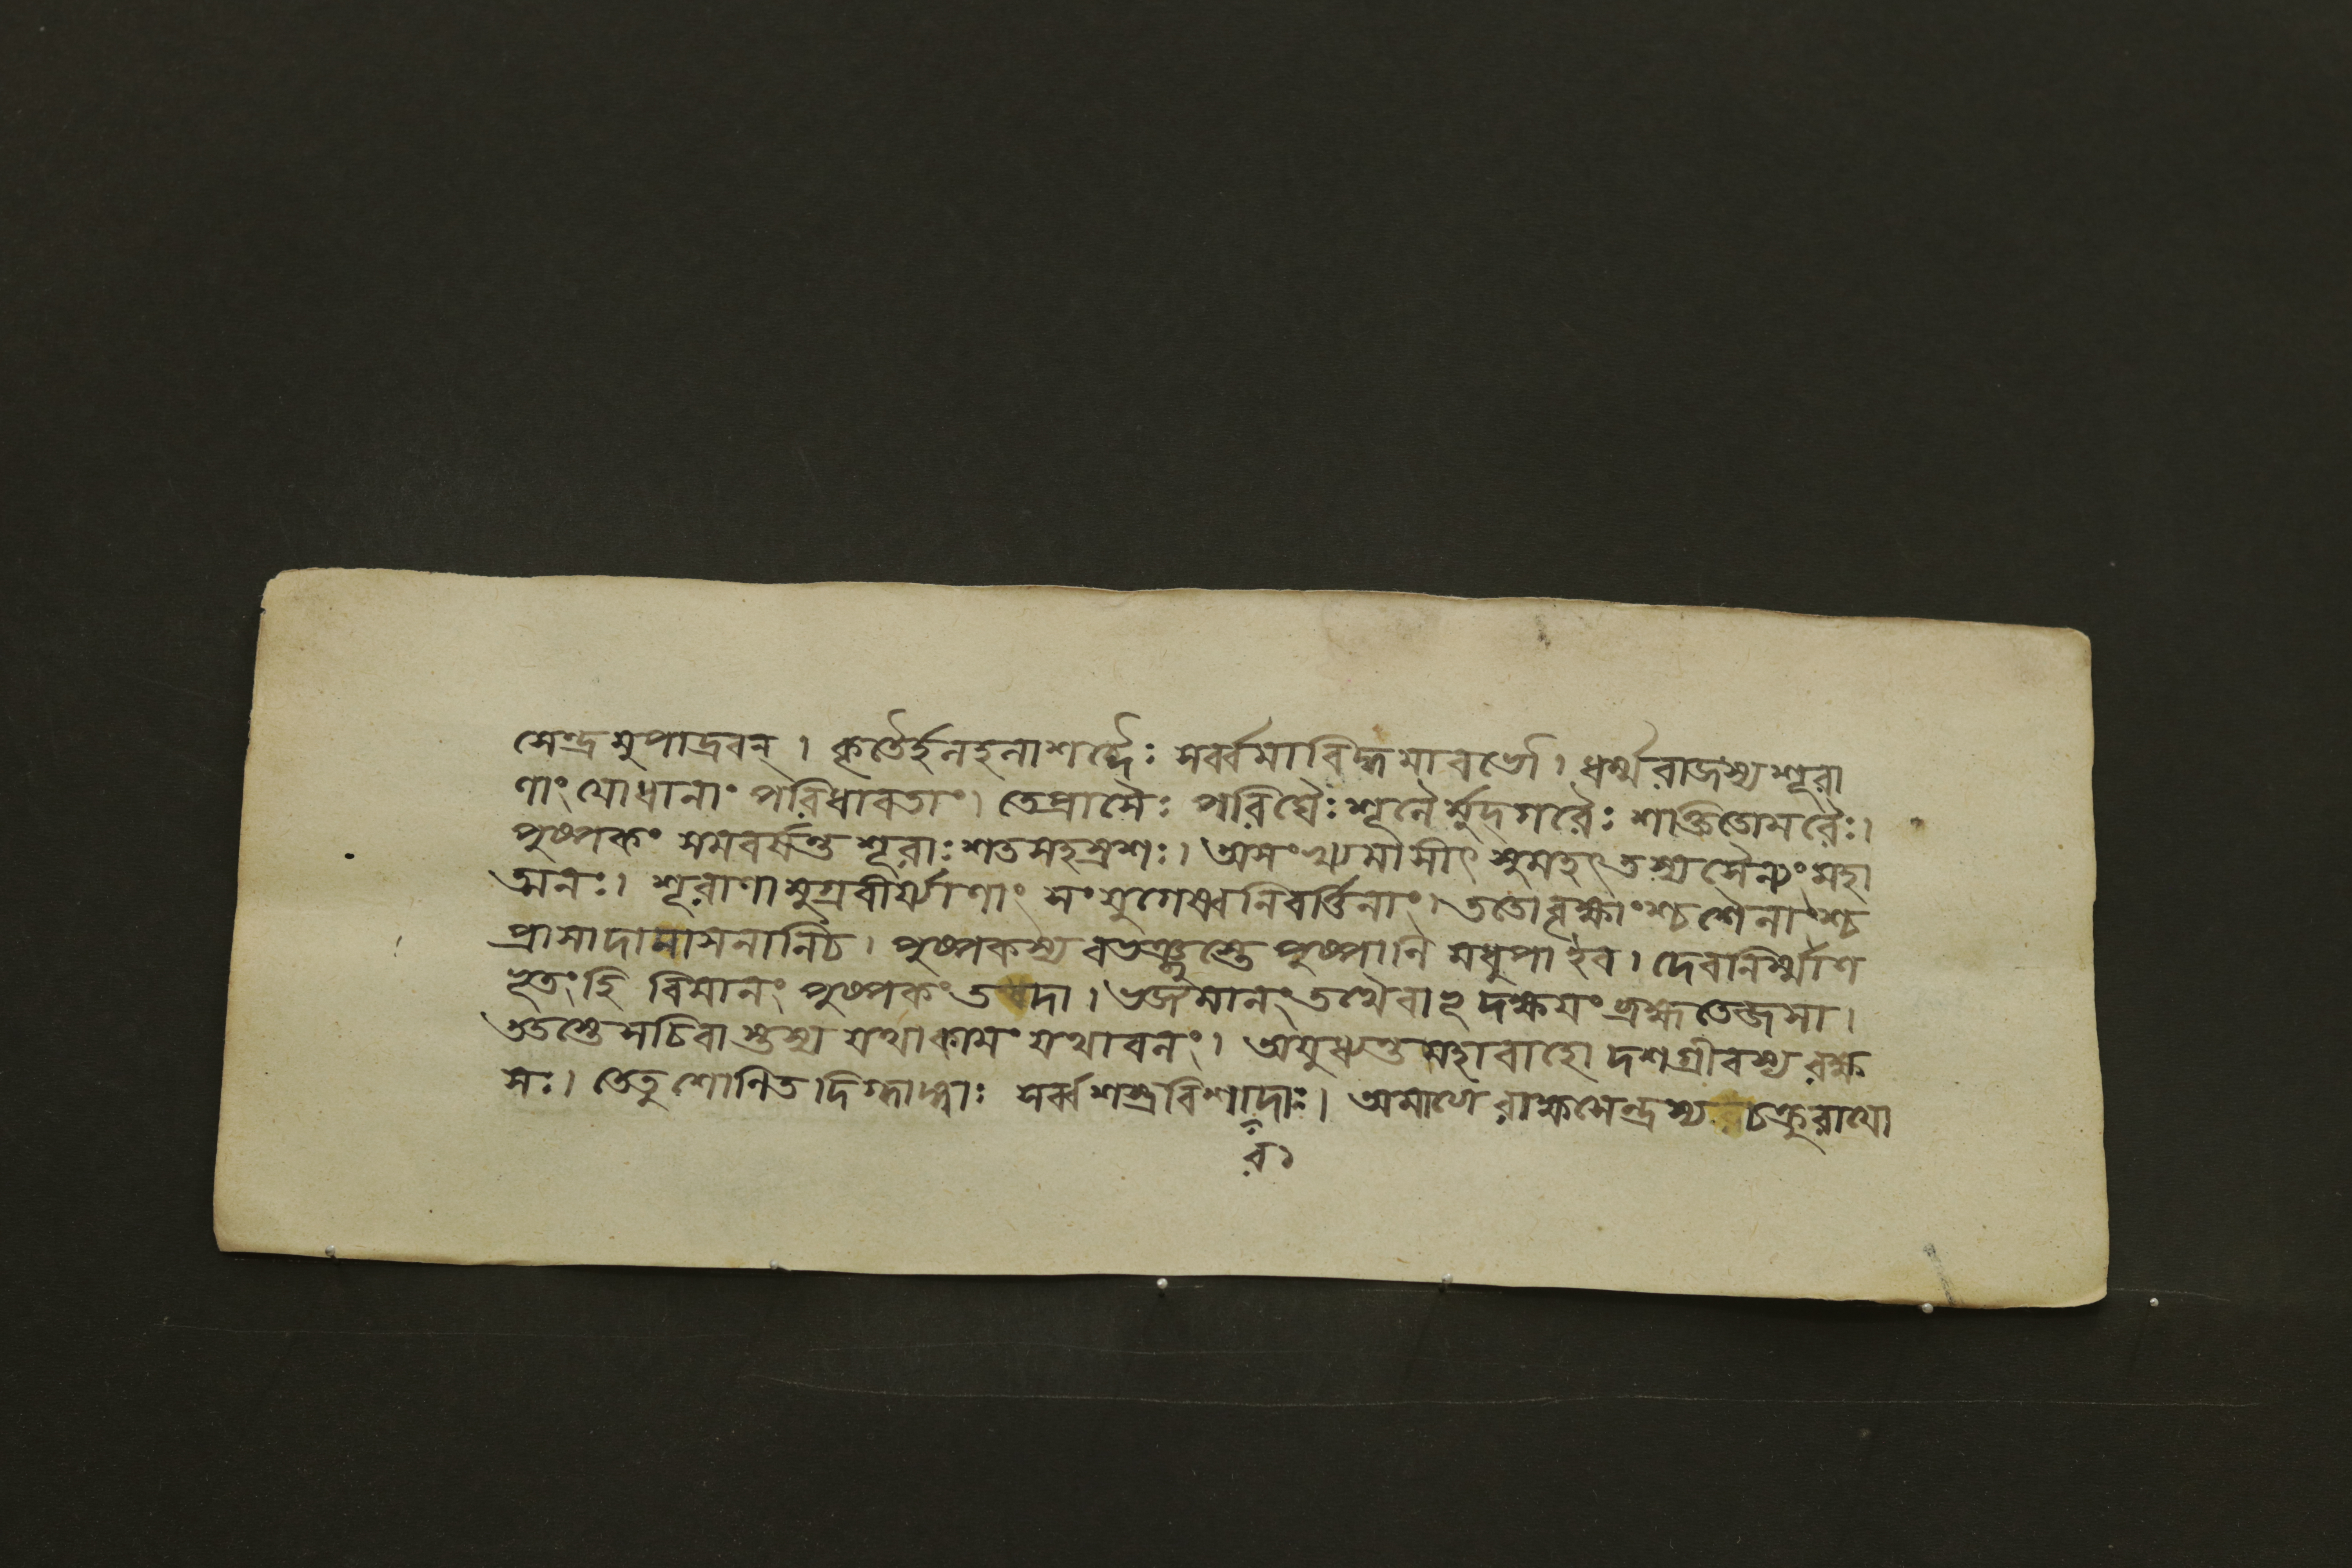 সেন্দ্রমুপাদ্রবন্ । কৃতৈর্হনহনাশব্দৈঃ সর্ব্বমাবিদ্ধমাবভৌ । ধর্ম্মরাজস্য শূরা
ণাং যোধানাং পরিধাবতাং । তে প্রাসৈঃ পরিঘৈঃ শূলৈর্মুদগরৈঃ শক্তিতোমরৈঃ ।
পুষ্পকং সমবর্ষন্ত শূরাঃ শতসহস্রশঃ । অসংখ্যমাসীৎ সুমহৎ তস্য সৈন্যং মহা
ত্মনঃ । শূরাণামুগ্রবীর্য্যাণাং সংযুগেষ্বনিবর্ত্তিনাং । ততো বৃক্ষাংশ্চ শৈলাংশ্চ
প্রাসাদানাসনানি চ । পুষ্পকস্য বভঞ্জুস্তে পুষ্পানি মধুপা ইব । দেবনির্ম্মাণ
ভূতং হি বিমানং পুষ্পকং তদা । ভজ্যমানং তথৈবাভূদক্ষয়ং ব্রহ্মতেজসা ।
ততস্তে সচিবাস্তস্য যথাকামং যথাবলং । অযুধ্যন্ত মহাবাহো দশগ্রীবস্য রক্ষ
সঃ । তে তু শোণিতদিগ্ধাঙ্গাঃ সর্ব্বশস্ত্রবিশাদাঃ । অমাত্যে রাক্ষসেন্দ্রস্য চক্রুরাযো
র১